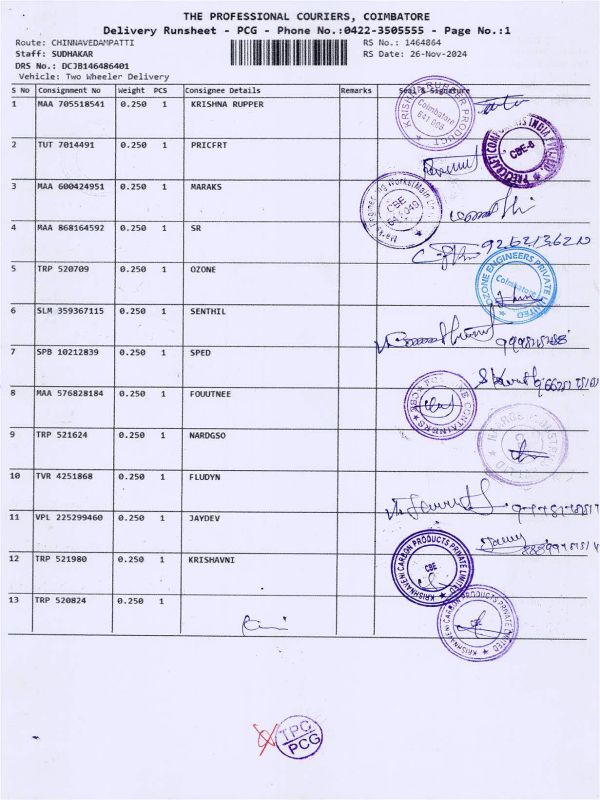 THE PROFESSIONAL COURIERS, COIMBATORE
Delivery Runsheet - PCG - Phone No.:0422-3505555 - Page No.:1
Route: CHINNAVEDAMPATTI RS No.: 1464864
Staff: SUDHAKAR RS Date: 26-Nov-2024
DRS No.: DCJB146486401
Vehicle: Two Wheeler Delivery
S No Consignment No Weight PCS Consignee Details Remarks Seal & Signature
1 MAA 705518541 0.250 1 KRISHNA RUPPER
KRISHNA RUPPER PRODUCT
Coimbatore
641 006
2 TUT 7014491 0.250 1 PRICFRT
CBE-6
3 MAA 600424951 0.250 1 MARAKS
CBE
641 049
4 MAA 868164592 0.250 1 SR
9262136210
5 TRP 520709 0.250 1 OZONE
OZONE ENGINEERS PRIVATE LIMITED
Coimbatore
6 SLM 359367115 0.250 1 SENTHIL
7 SPB 10212839 0.250 1 SPED
8 MAA 576828184 0.250 1 FOUUTNEE
9 TRP 521624 0.250 1 NARDGSO
10 TVR 4251868 0.250 1 FLUDYN
11 VPL 225299460 0.250 1 JAYDEV
12 TRP 521980 0.250 1 KRISHAVNI
KRISHNAVENI CARBON PRODUCTS PRIVATE LIMITED
CBE
13 TRP 520824 0.250 1
KRISHNAVENI CARBON PRODUCTS PRIVATE LIMITED
CBE
TPC
PCG